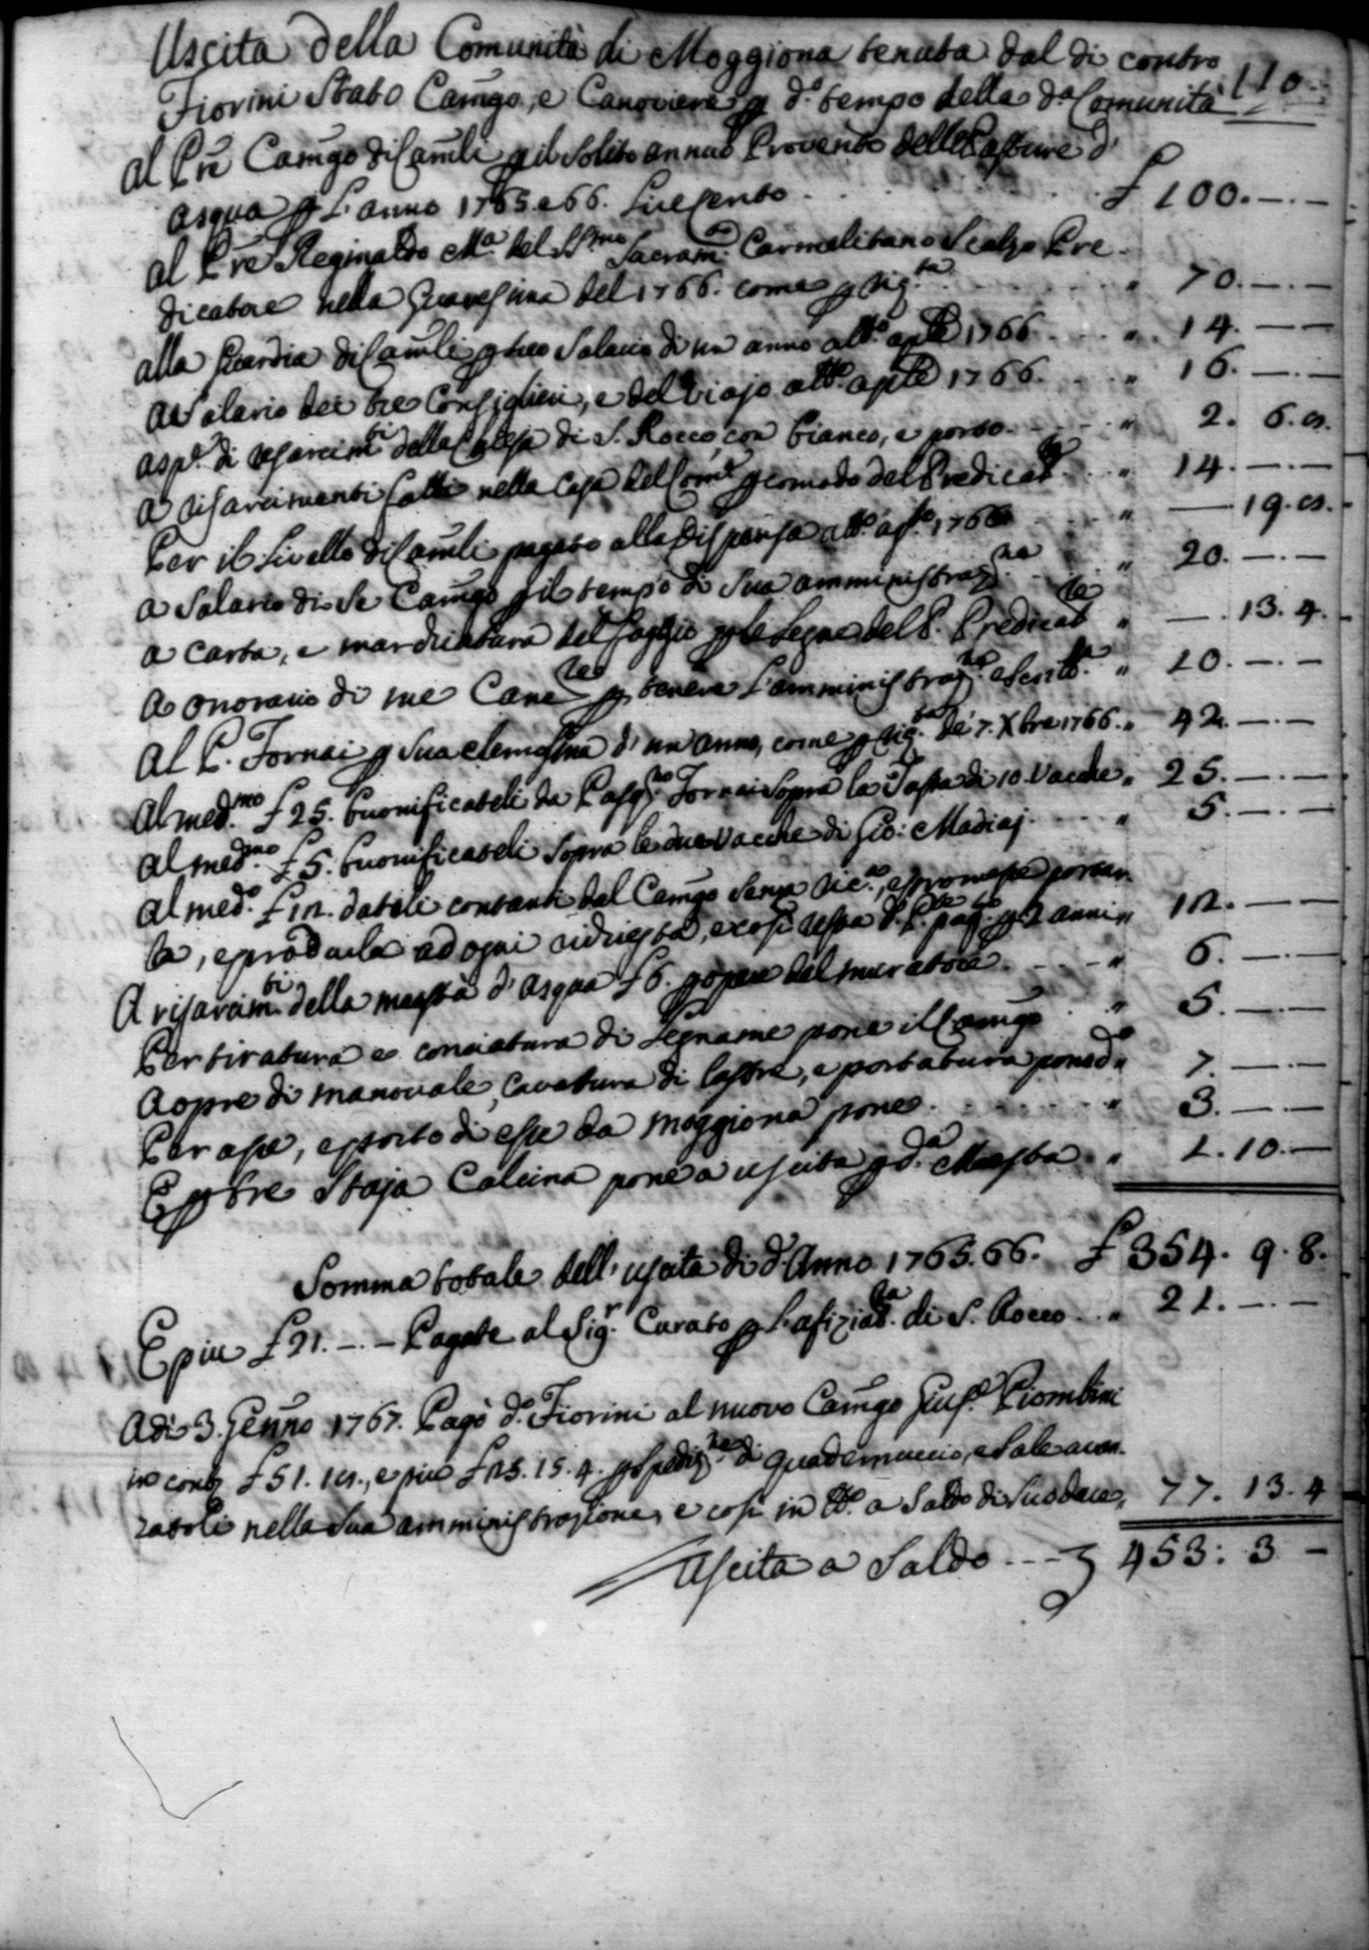 Uscita della Comunità di Moggiona tenuta dal di contro
110.
Fiorini Stato Camgo, e Canoviere p d.o tempo della d.a Comunità
al Pre Camgo di Camli p il solito annuo Provento delle Pasture d'
asqua p l'anno 1765 e 66. Lire Cento . . . £ 100.—.—
al Pre Reginaldo M.a del SS.mo Sacram.to Carmelitano Scalzo Pre-
dicatore nella Quaresima del 1766. come p ric.ta . . . " 70.—.—
alla Guardia di Camli p suo Salario di un anno a tt.o aple 1766 . . . " 14.—.—
a Salario dei tre Consiglieri, e del Viajo a tt.o aple 1766. . . . " 16.—.—
a sp.e di risarcim.ti della Chiesa di S. Rocco, con bianco, e porto . . . " 2. 6. 8.
a risarcimenti fatti nella Casa del Com.e p comodo del Predicat.e . . . " 14.—.—
Per il Livello di Camli pagato alla Dispensa a tt.o ag.o 1766 . . . " — 19. 8.
a Salario di Se Camgo p il tempo di Sua amministraz.ne . . . " 20.—.—
a carta, e marchiatura del faggio p le Legne del P. Predicat.e " —. 13. 4.
a onorario di me Canc.re p tenere l'amministraz.ne e Scritt.a " 10.—.—
al P. Fornai p Sua elemosina d'un anno, come p ric.ta de 7. Xbre 1766. " 42.—.—
al med.mo £ 25. buonificateli da Pasq.no Fornai sopra la Tassa di 10. Vacche " 25.—.—
al med.mo £ 5. buonificateli sopra le due Vacche di Gio: Madiaj . . . " 5.—.—
al med.o £ 12. datoli contanti dal Camgo senza ric.ta, e promesse portar-
la, e produrla ad ogni richiesta, e così resta d.o P. pag.to p 2 anni " 12.—.—
A risarcim.ti della maestà d'asqua £ 6. p opere del muratore . . . " 6.—.—
Per tiratura e conciatura di Legname pone il Camgo . . . " 5.—.—
a opre di manovale, cavatura di lastre, e portatura pone d.o " 7.—.—
Per asse, e porto di esse da Moggiona pone . . . " 3.—.—
E p tre Staja Calcina pone a uscita p d.a Maestà . " 1. 10.—
Somma totale dell' uscita di d.o Anno 1765. 66. £ 354. 9. 8.
E piu £ 21.—.— Pagate al Sig.r Curato p l'afiziat.ra di S. Rocco . . " 21.—.—
Adi 3. Genno 1767. Pagò d.o Fiorini al nuovo Camgo Giuse.e Piombini
in cont.i £ 51. 18., e piu £ 25. 15. 4. p spediz.ne di quadernuccio, e Sale avan-
zatoli nella Sua amministrazione, e così in tt.o a Saldo di Suo dare, 77. 13. 4
Uscita a Saldo - - - £ 453: 3 —